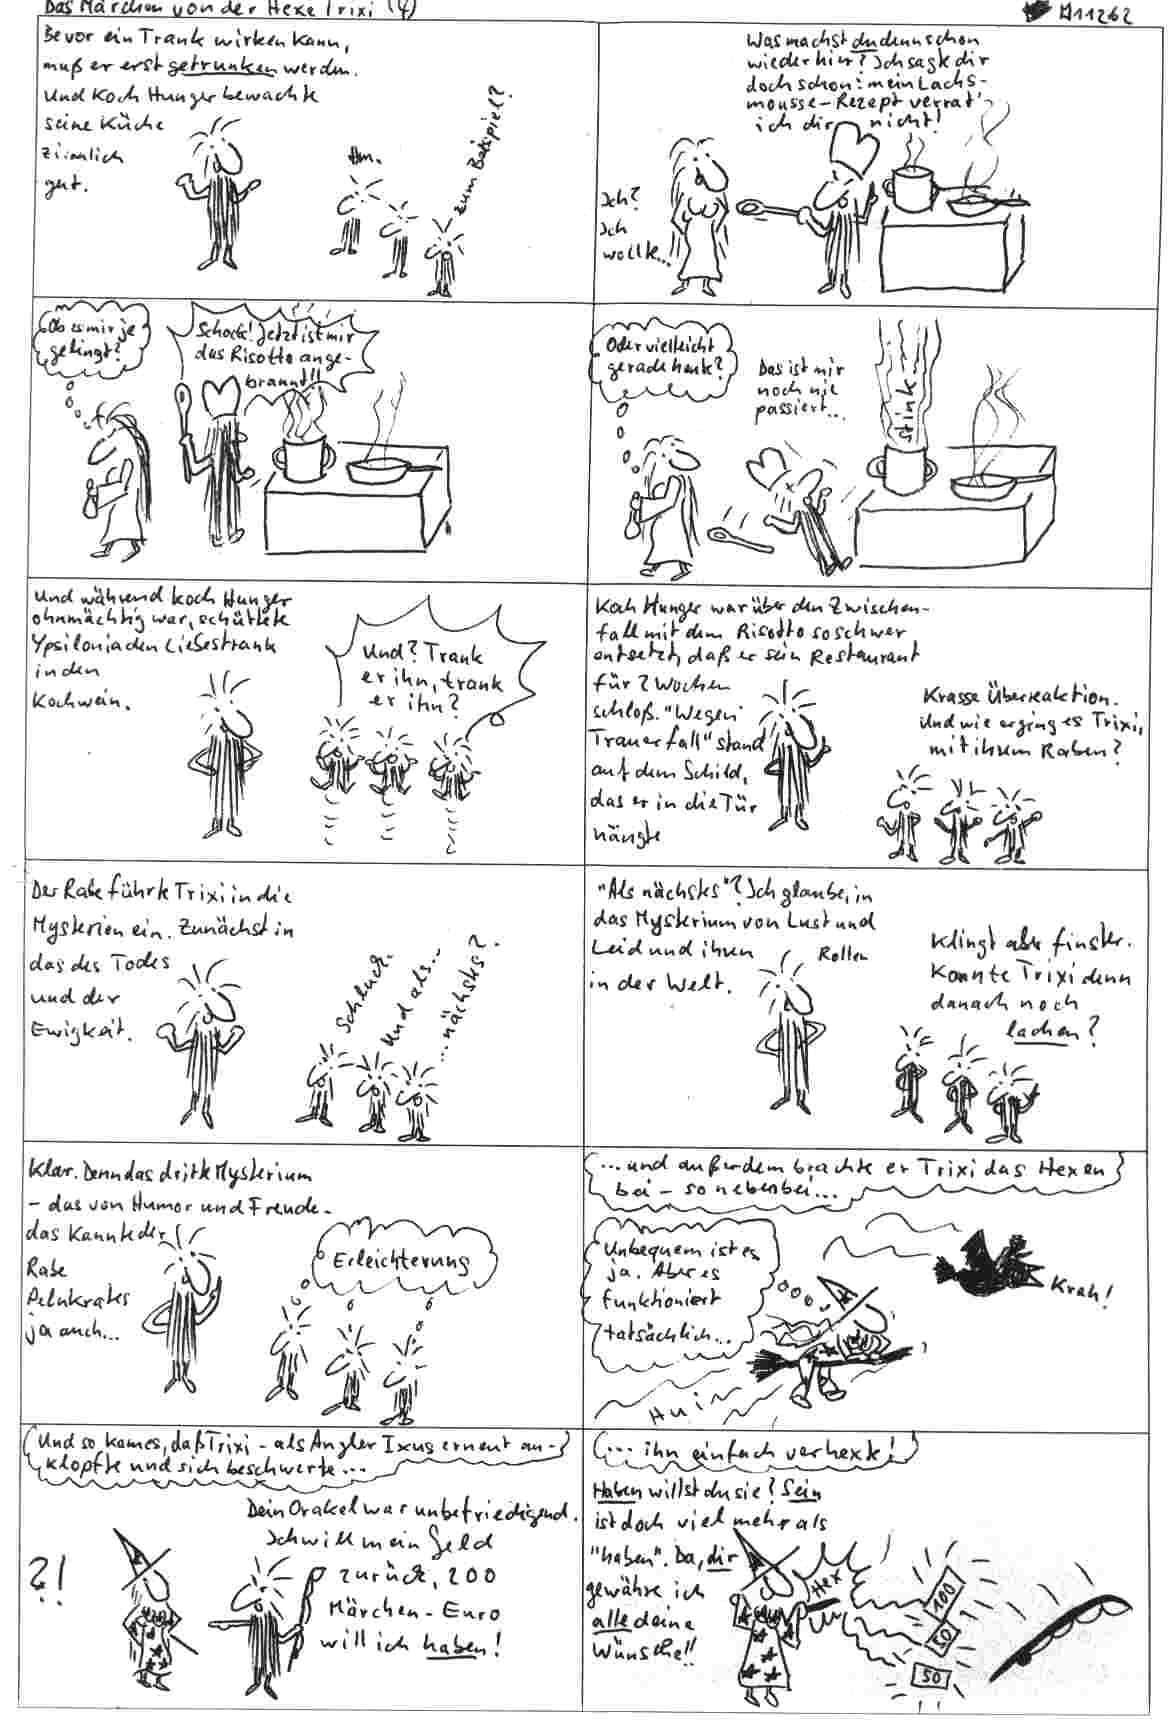 Das Märchen von der Hexe Trixi (4)
A11262
Bevor ein Trank wirken kann,
muß er erst getrunken werden.
Und Koch Hunger bewachte
seine Küche
ziemlich
gut.
Hm.
zum Beispiel?
Was machst du denn schon
wieder hier? Ich sagte dir
doch schon: mein Lachs-
mousse-Rezept verrat'
ich dir nicht!
Ich?
Ich
wollte...
Ob es mir je
gelingt?
Schock! Jetzt ist mir
das Risotto ange-
brannt!!
Oder vielleicht
gerade heute?
Das ist mir
noch nie
passiert...
stink
Und während Koch Hunger
ohnmächtig war, schüttete
Ypsilonia den Liebestrank
in den
Kochwein.
Und? Trank
er ihn, trank
er ihn?
Koch Hunger war über den Zwischen-
fall mit dem Risotto so schwer
entsetzt, daß er sein Restaurant
für 2 Wochen
schloß. "Wegen
Trauerfall" stand
auf dem Schild,
das er in die Tür
hängte
Krasse Überreaktion.
Und wie erging es Trixi,
mit ihrem Raben?
Der Rabe führte Trixi in die
Mysterien ein. Zunächst in
das des Todes
und der
Ewigkeit.
Schluck.
Und als...
...nächstes?
"Als nächstes"? Ich glaube, in
das Mysterium von Lust und
Leid und ihren Rollen
in der Welt.
Klingt aber finster.
Konnte Trixi denn
danach noch
lachen?
Klar. Denn das dritte Mysterium
- das von Humor und Freude -
das kannte der
Rabe
Pelukrates
ja auch...
Erleichterung
...und außerdem brachte er Trixi das Hexen
bei - so nebenbei...
Unbequem ist es
ja. Aber es
funktioniert
tatsächlich...
Krah!
Hui
Und so kam es, daß Trixi - als Angler Ixus erneut an-
klopfte und sich beschwerte...
Dein Orakel war unbefriedigend.
Ich will mein Geld
zurück, 200
Märchen-Euro
will ich haben!
?!
...ihn einfach verhexte!
Haben willst du sie? Sein
ist doch viel mehr als
"haben". Da, dir
gewähre ich
alle deine
Wünsche!!
Hex
100
50
50